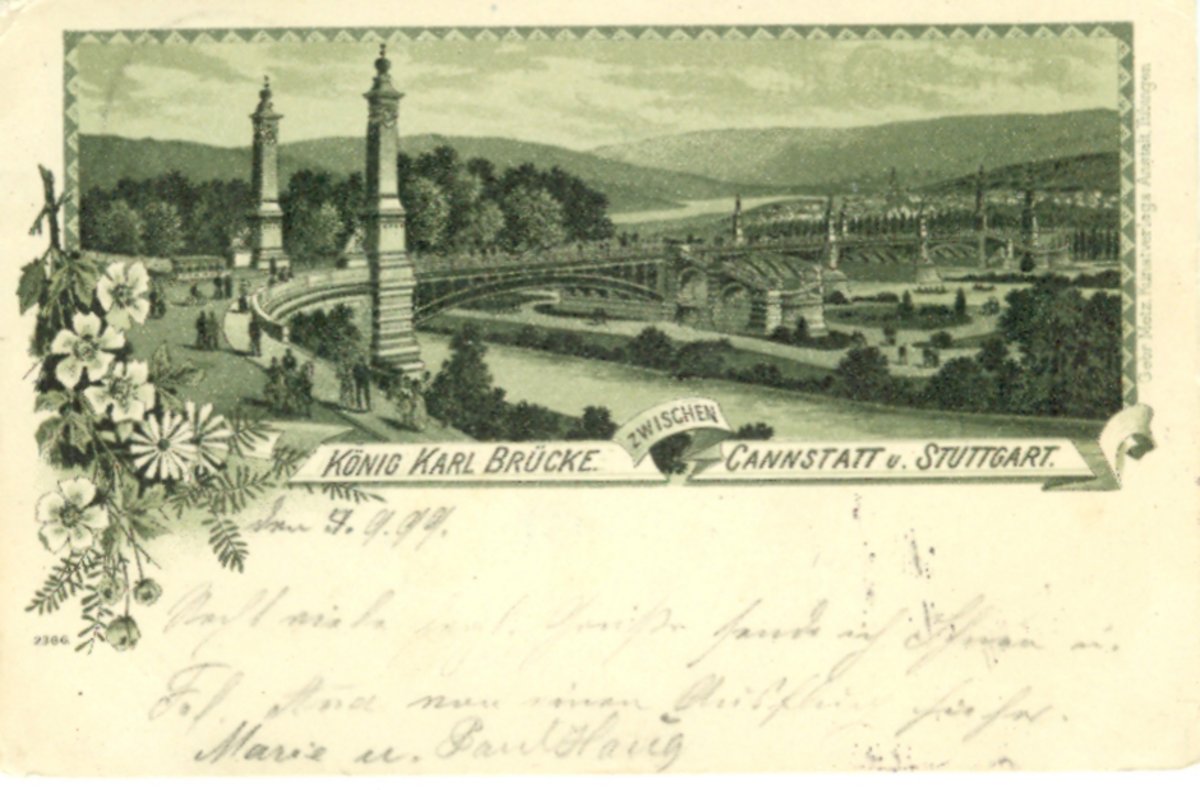 KÖNIG KARL BRÜCKE.
ZWISCHEN
CANNSTATT u. STUTTGART.
Gebr. Metz, Kunstverlags Anstalt, Tübingen
den 7. 9. 99.
2366
Recht viele Grüße sende ich Ihnen u.
Frl. von einem Ausflug hieher.
Marie u. Paul Haug